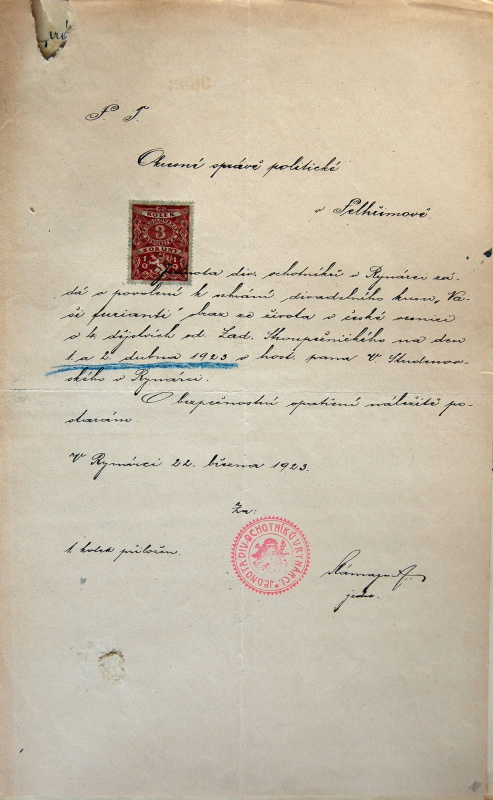 P. T.
Okresní správě politické
v Pelhřimově
KOLEK
3
KORUNY
1919
Jednota div. ochotníků v Rynárci žá-
dá o povolení k sehrání divadelního kusu „Na-
ši furianti" obraz ze života v české vesnici
o 4. dějstvích od Lad. Stroupežnického na den
1. a 2. dubna 1923 v host. pana V Studenov-
ského v Rynárci.
O bezpečnostní opatření náležitě po-
staráno.
V Rynárci 22. března 1923.
Za:
JEDNOTA DIV. OCHOTNÍKŮ V RYNÁRCI.
1 kolek přiložen.
jedn.